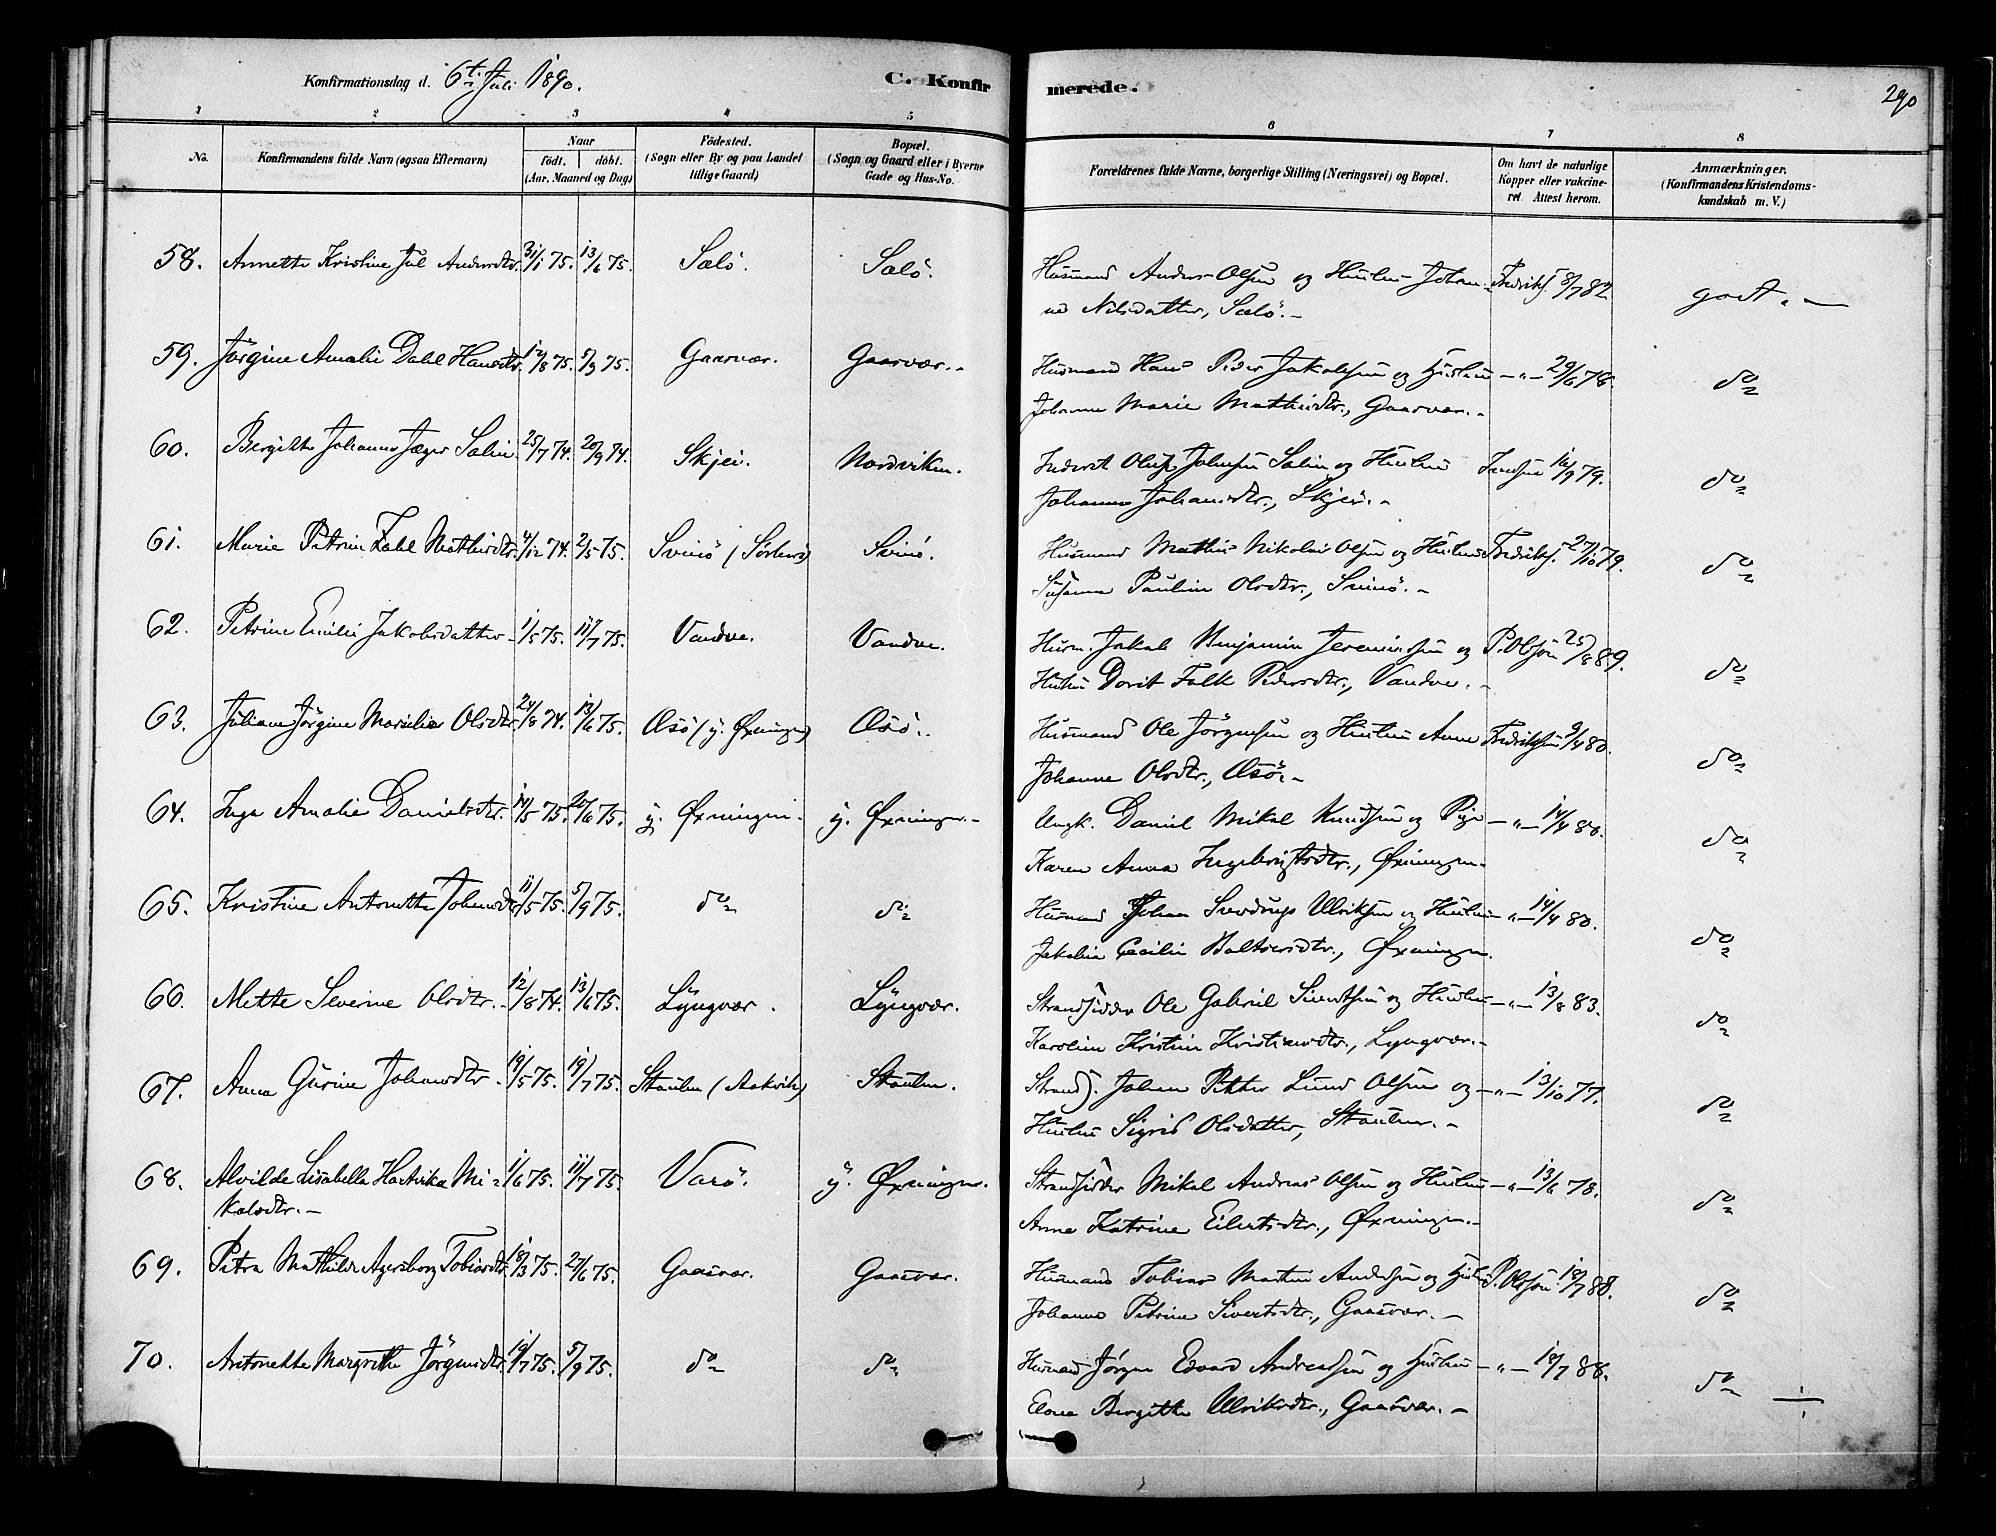 Konfirmationsdag d. 6te Juli 1890. C. Konfir merede. 290
1 2 3 4 5 6 7 8
No. Konfirmandens fulde Navn (ogsaa Efternavn) Naar født. døbt. (Aar, Maaned og Dag) Födested. (Sogn eller By og paa Landet tillige Gaard) Bopæl. (Sogn og Gaard eller i Byerne Gade og Hus-No. Forældrenes fulde Navne, borgerlige Stilling (Næringsvei) og Bopæl. Om havt de naturlige Kopper eller vakcineret. Attest herom. Anmærkninger. (Konfirmandens Kristendomskundskab m. V.)
58. Annette Kristine Jul Andersdtr. 31/1 75. 13/6 75. Sælö. Sælö. Husmand Anders Olsen og Hustru Johan- Fredriks. 8/7 82. godt. —
ne Nilsdatter, Sælö. —
59. Jörgine Amalie Dahl Hansdtr. 12/8 75. 5/9 75. Gaasvær. Gaasvær. Husmand Hans Peder Jakobsen og Hustru — „ — 29/6 78. do
Johanna Marie Mathisdtr., Gaasvær. —
60. Bergitte Johanna Jæger Salin 25/7 74. 20/9 74. Skjei. Nordviken. Inderst Oluf Johnsen Salin og Hustru Jensen 16/9 79. do
Johanna Johansdtr., Skjei. —
61. Marie Petrine Zahl Mathisdtr. 4/12 74. 2/5 75. Svinö (Sörherö) Svinö. Husmand Mathis Nikolai Olsen og Hustru Fredriks. 27/10 79. do
Susanna Pauline Olsdtr., Svinö. —
62. Petrine Emilie Jakobsdatter 1/5 75. 11/7 75. Vandve. Vandve. Husm. Jakob Benjamin Jeremiassen og P. Olsen 25/8 89. do
Hustru Dorit Falk Pedersdtr., Vandve. —
63. Juliane Jörgine Marselia Olsdtr. 24/8 74. 13/6 75. Æsö (y. Øxningen) Æsö. Husmand Ole Jörgensen og Hustru Anne Fredriksen 9/4 80. do
Johanne Olsdtr., Æsö. —
64. Inga Amalie Danielsdtr. 14/5 75. 20/6 75. y. Øxningen. y. Øxningen. — Ungk. Daniel Mikal Knudsen og Pige — „ — 14/4 80. do
Karen Anna Ingebrigtsdtr., Øxningen.
65. Kristine Antonette Johansdtr 11/5 75. 5/9 75. do do Husmand Johan Sverdrup Ulriksen og Hustru — „ — 14/4 80. do
Jakobia Cecilie Baltsersdtr., Øxningen.
66. Mette Severine Olsdtr. 12/8 74. 13/6 75. Lyngvær. Lyngvær. Strandsidder Ole Gabriel Sivertsen og Hustru — „ — 13/8 83. do
Karoline Kristine Kristiansdtr., Lyngvær. —
67. Anna Gurine Johansdtr. 19/5 75. 19/7 75. Staulen (Aakvik) Staulen. Strands. Johan Petter Lund Olsen og — „ — 13/10 77. do
Hustru Sigrid Olsdatter, Staulen. —
68. Alvilde Lisabella Hartvika Mi- 1/6 75. 11/7 75. Varö. y. Øxningen. Strandsidder Mikal Andreas Olsen og Hustru — „ — 13/6 78. do
kalsdtr. — Anne Katrine Eilertsdtr., Øxningen. —
69. Petra Mathilde Agersborg Tobiasdtr. 18/3 75. 27/6 75. Gaasvær. Gaasvær. Husmand Tobias Martin Andersen og Hustru P. Olsen 18/7 88. do
Johanne Petrine Sivertsdtr., Gaasvær. —
70. Antonette Margrethe Jörgensdtr. 19/7 75. 5/9 75. do do Husmand Jörgen Edvard Andreassen og Hustru — „ — 18/7 88. do
Elena Bergitte Ulriksdtr., Gaasvær. —